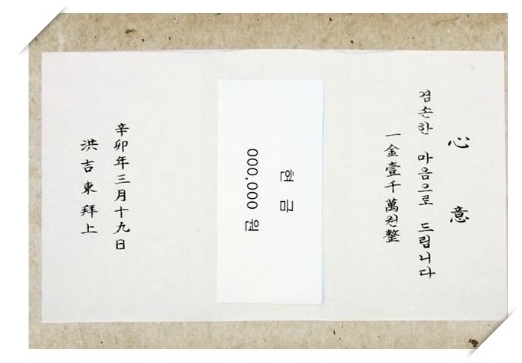 心意
겸손한 마음으로 드립니다
一金壹千萬원整
현금
000,000 원
辛卯年三月十九日
洪吉東拜上